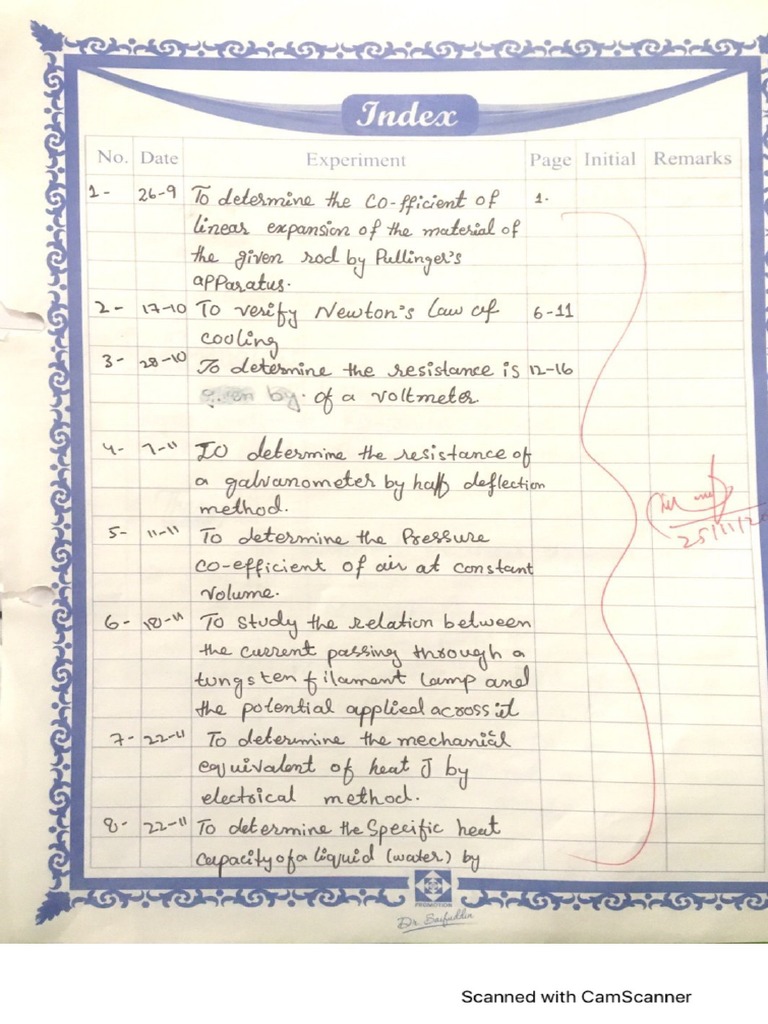 Index
No. Date Experiment Page Initial Remarks
1- 26-9 To determine the co-fficient of 1.
linear expansion of the material of
the given rod by Pullinger's
apparatus.
2- 17-10 To verify Newton's Law of 6-11
cooling
3- 28-10 To determine the resistance is 12-16
given by. of a voltmeter
4- 7-11 To determine the resistance of
a galvanometer by half deflection
method.
5- 11-11 To determine the Pressure
co-efficient of air at constant
volume.
6- 18-11 To study the relation between
the current passing through a
tungsten filament lamp and
the potential applied across it
7- 22-11 To determine the mechanical
equivalent of heat J by
electrical method.
8- 22-11 To determine the Specific heat
capacity of a liquid (water) by
25/11/20
PROMOTION
Dr. Saifuddin
Scanned with CamScanner